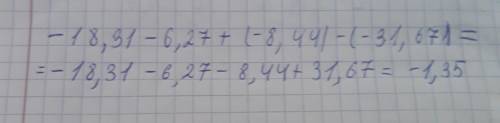 -18,31-6,27+(-8,44)-(-31,67)=
=-18,31-6,27-8,44+31,67=-1,35